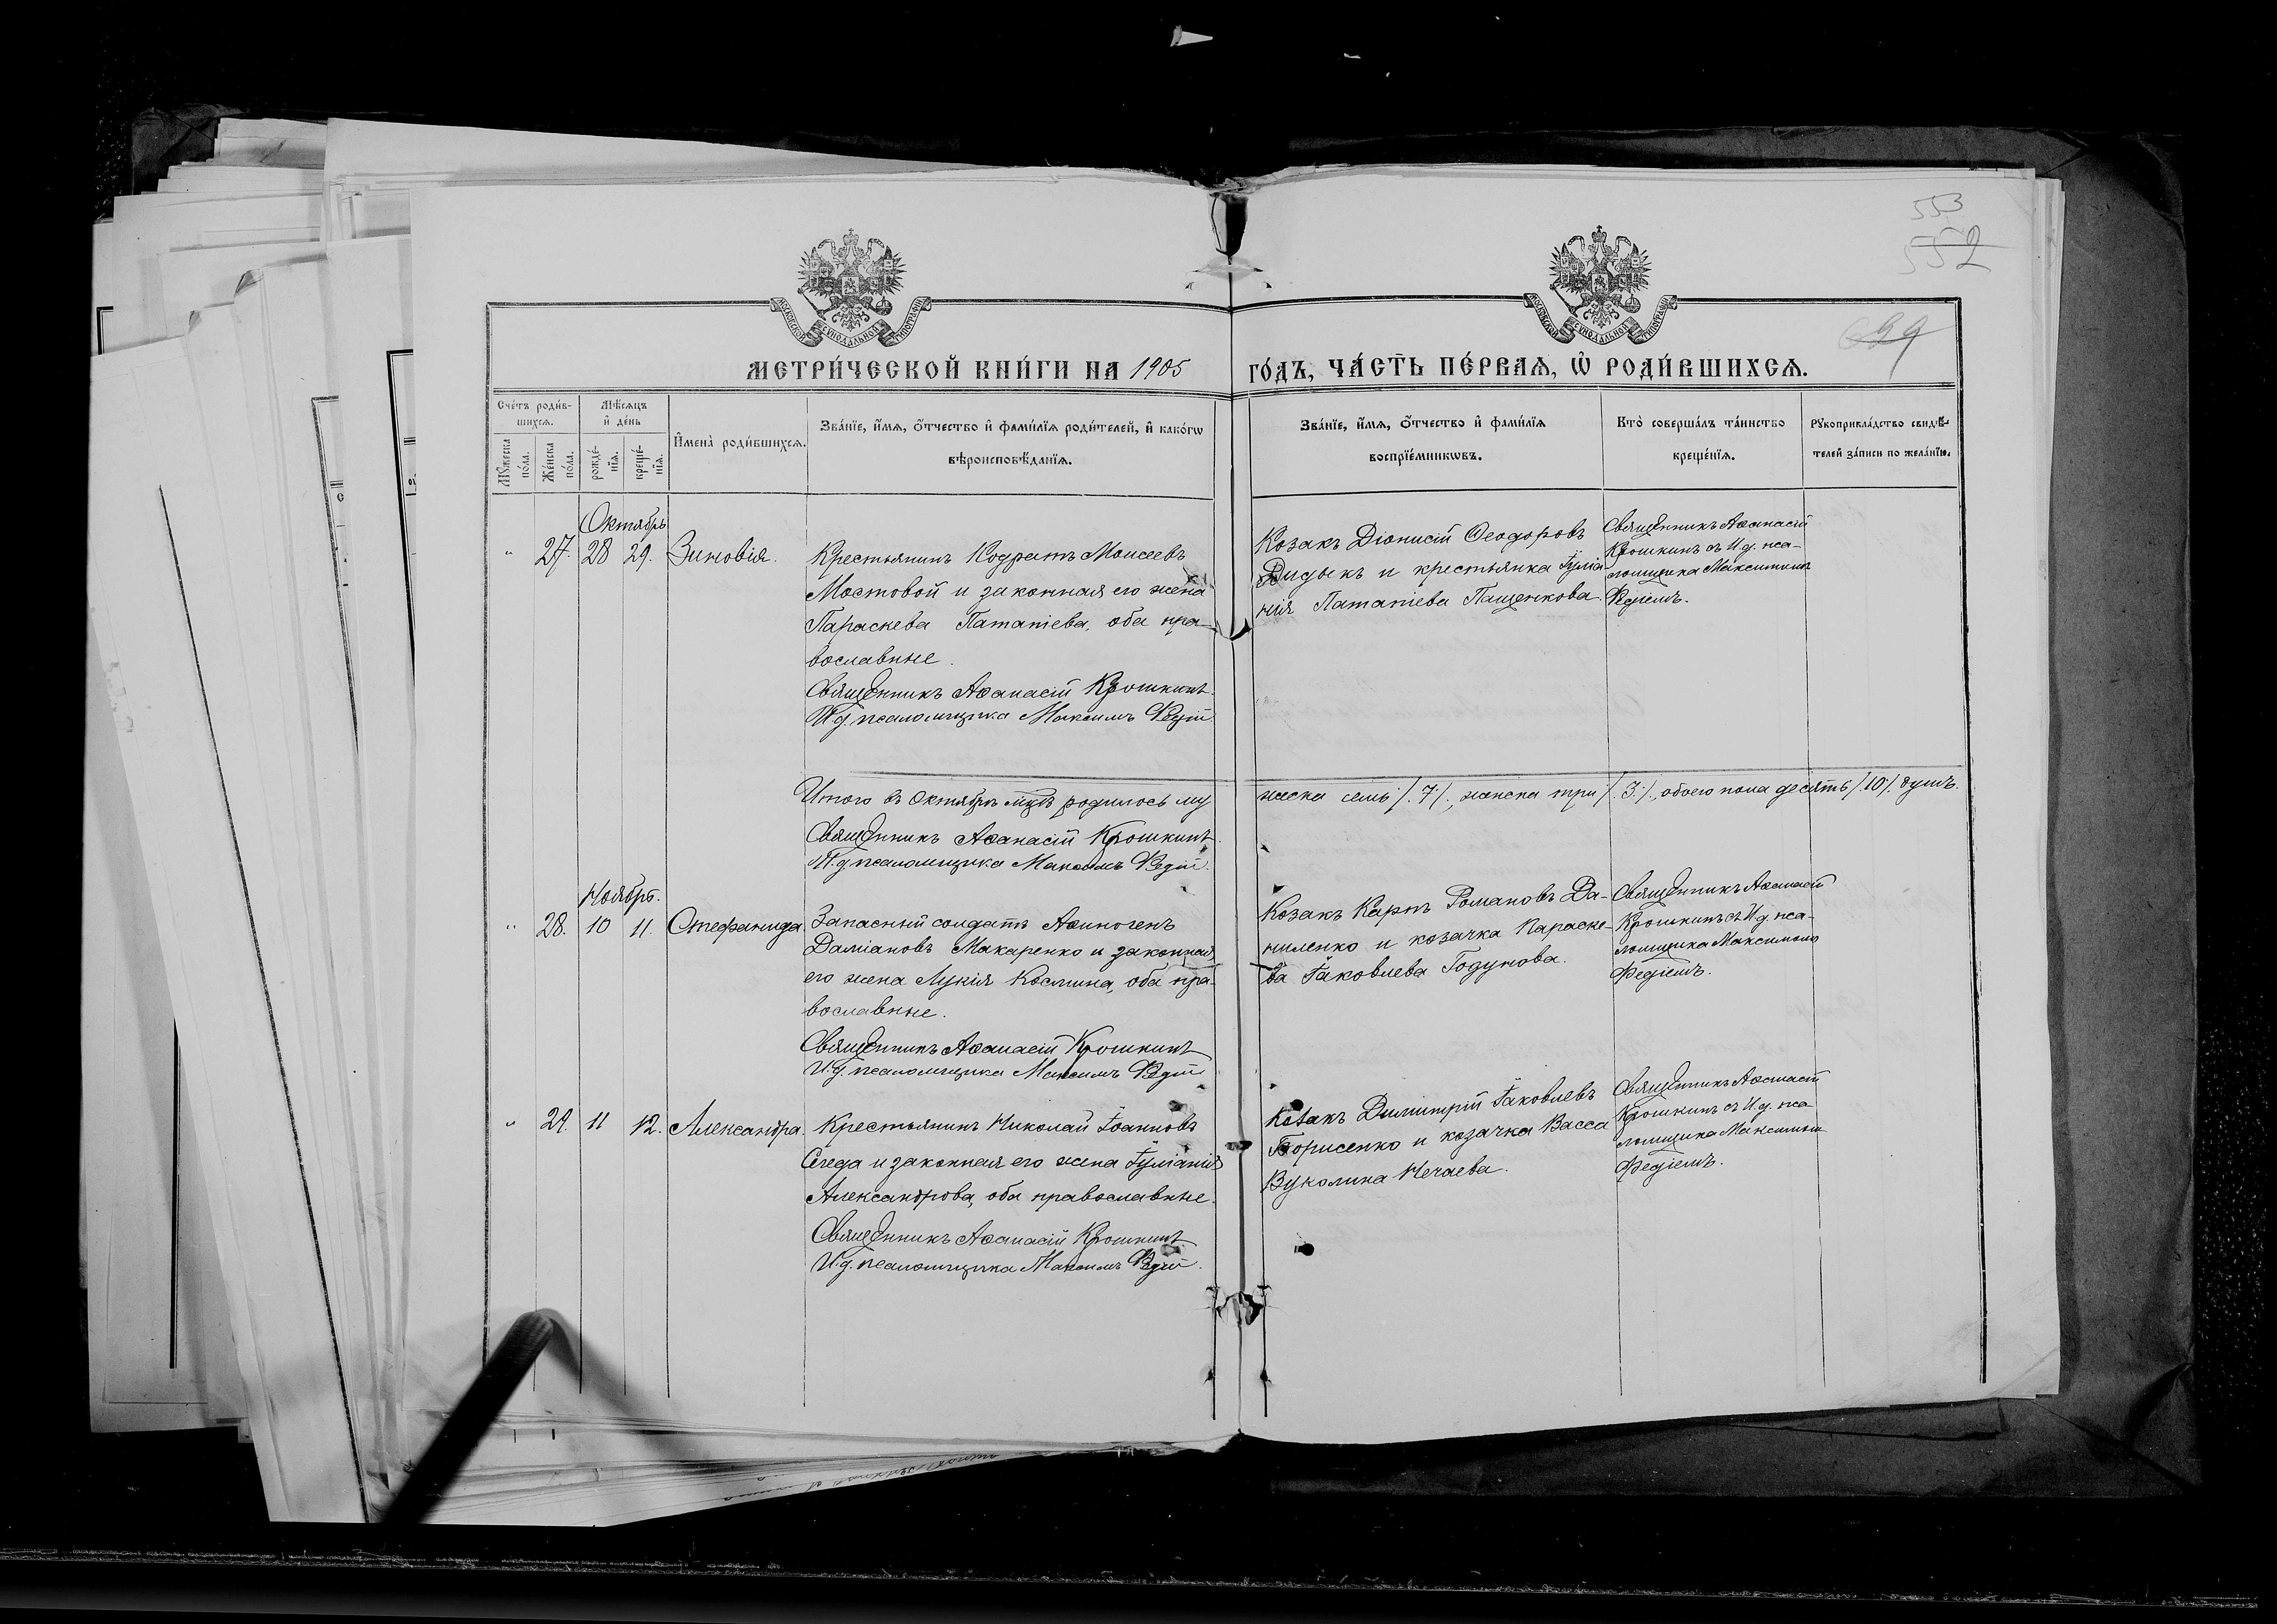 553
552
699
МОСКОВСКОЙ СѴНОДАЛЬНОЙ ТИПОГРАФІИ
МОСКОВСКОЙ СѴНОДАЛЬНОЙ ТИПОГРАФІИ
МЕТРИ́ЧЕСКОЙ КНИ́ГИ НА 1905
ГО́ДЪ, ЧА́СТЬ ПЕ́РВАѦ, Ѡ҆ РОДИ́ВШИХСѦ.
Сче́тъ роди́в-
шихсѧ.
Мꙋ́жеска по́ла.
Же́нска по́ла.
Мѣ́сѧцъ
и҆ де́нь
рожде́-
нїѧ.
креще́-
нїѧ.
И҆мена̀ роди́вшихсѧ.
Зва́нїе, и҆́мѧ, ѻ҆́тчество и҆ фами́лїѧ роди́телей, и҆ како́гѡ
вѣроисповѣ́данїѧ.
Зва́нїе, и҆́мѧ, ѻ҆́тчество и҆ фами́лїѧ
воспрїе́мникѡвъ.
Кто̀ соверша́лъ та́инство
креще́нїѧ.
Рꙋкоприкла́дство свидѣ́-
телей за́писи по жела́нїю.
Октябрь
" 27. 28 29. Зиновія.
Крестьянинъ Кодратъ Моисеевъ
Мостовой и законная его жена
Параскева Патапіева, оба пра-
вославные.
Священникъ Аѳанасій Крошкинъ.
И.д. псаломщика Максимъ Ѳедій.
Козакъ Діонисій Ѳеодоровъ
Дидыкъ и крестьянка Іуліа
нія Патапіева Пащенкова.
Священникъ Аѳанасій
Крошкинъ съ И.д. пса-
ломщика Максимомъ
Ѳедіемъ.
Итого въ Октябрѣ мцѣ родилось му
жеска семь /.7./, женска три /.3./, обоего пола десять /.10./ душъ.
Священникъ Аѳанасій Крошкинъ.
И.д. псаломщика Максимъ Ѳедій.
Ноябрь.
" 28. 10 11. Стефанида
Запасный солдатъ Аѳиногенъ
Даміановъ Макаренко и законная
его жена Лукія Космина, оба пра-
вославные.
Священникъ Аѳанасій Крошкинъ
И.д. псаломщика Максимъ Ѳедій
Козакъ Карпъ Романовъ Да-
ниленко и козачка Параске-
ва Іаковлева Годунова.
Священникъ Аѳанасій
Крошкинъ съ И.д. пса-
ломщика Максимомъ
Ѳедіемъ.
" 29. 11 12. Александра.
Крестьянинъ Николай Іоанновъ
Сегеда и законная его жена Іуліанія
Александрова, оба православные.
Священникъ Аѳанасій Крошкинъ
И.д. псаломщика Максимъ Ѳедій.
Козакъ Димитрій Іаковлевъ
Борисенко и козачка Васса
Вуколина Нечаева.
Священникъ Аѳанасій
Крошкинъ съ И.д. пса-
ломщика Максимом
Ѳедіемъ.